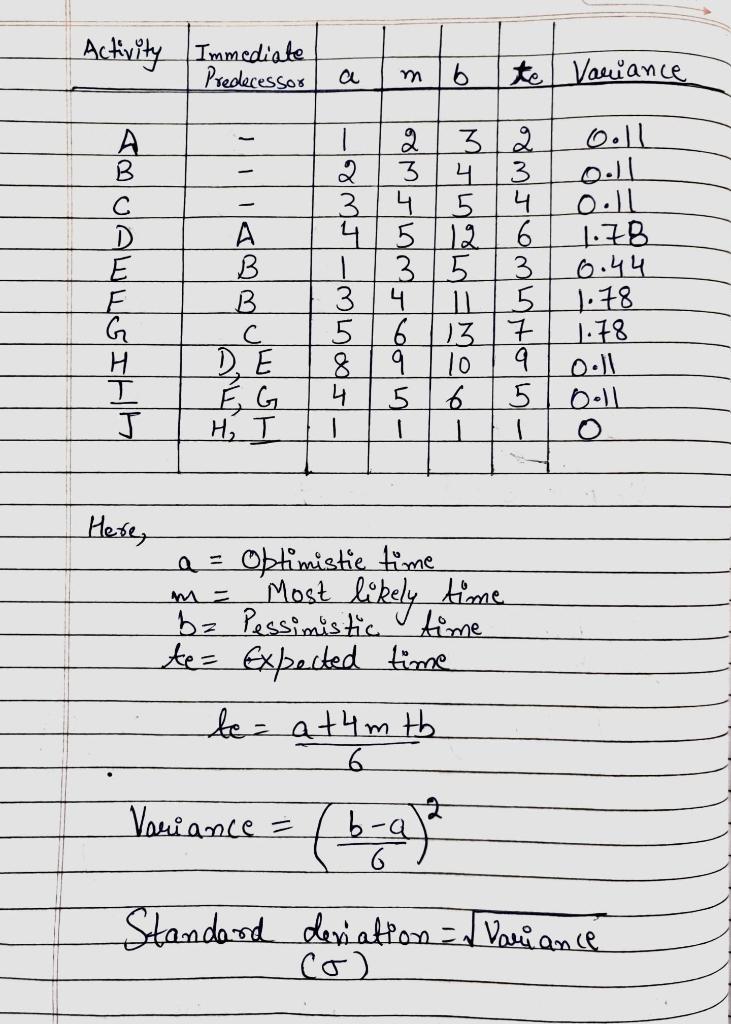 Activity Immediate Predecessor a m b te Variance
A - 1 2 3 2 0.11
B - 2 3 4 3 0.11
C - 3 4 5 4 0.11
D A 4 5 12 6 1.78
E B 1 3 5 3 0.44
F B 3 4 11 5 1.78
G C 5 6 13 7 1.78
H D, E 8 9 10 9 0.11
I F, G 4 5 6 5 0.11
J H, I 1 1 1 1 0
Here,
a = Optimistic time
m = Most likely time
b = Pessimistic time
te = Expected time
te = a+4m+b
6
Variance = (b-a/6)²
Standard deviation = √Variance
(σ)